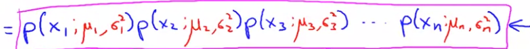 = p(x₁;μ₁,σ₁²) p(x₂;μ₂,σ₂²) p(x₃;μ₃,σ₃²) ⋯ p(xₙ;μₙ,σₙ²) ←